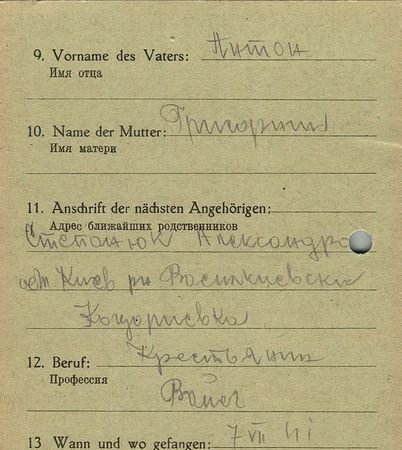 9. Vorname des Vaters: Антон
Имя отца
10. Name der Mutter:
Имя матери
11. Anschrift der nächsten Angehörigen:
Адрес ближайших родственников
Степанюк Александра
Киев рн Василкиевски
12. Beruf:
Профессия
13 Wann und wo gefangen: 7 VII 41